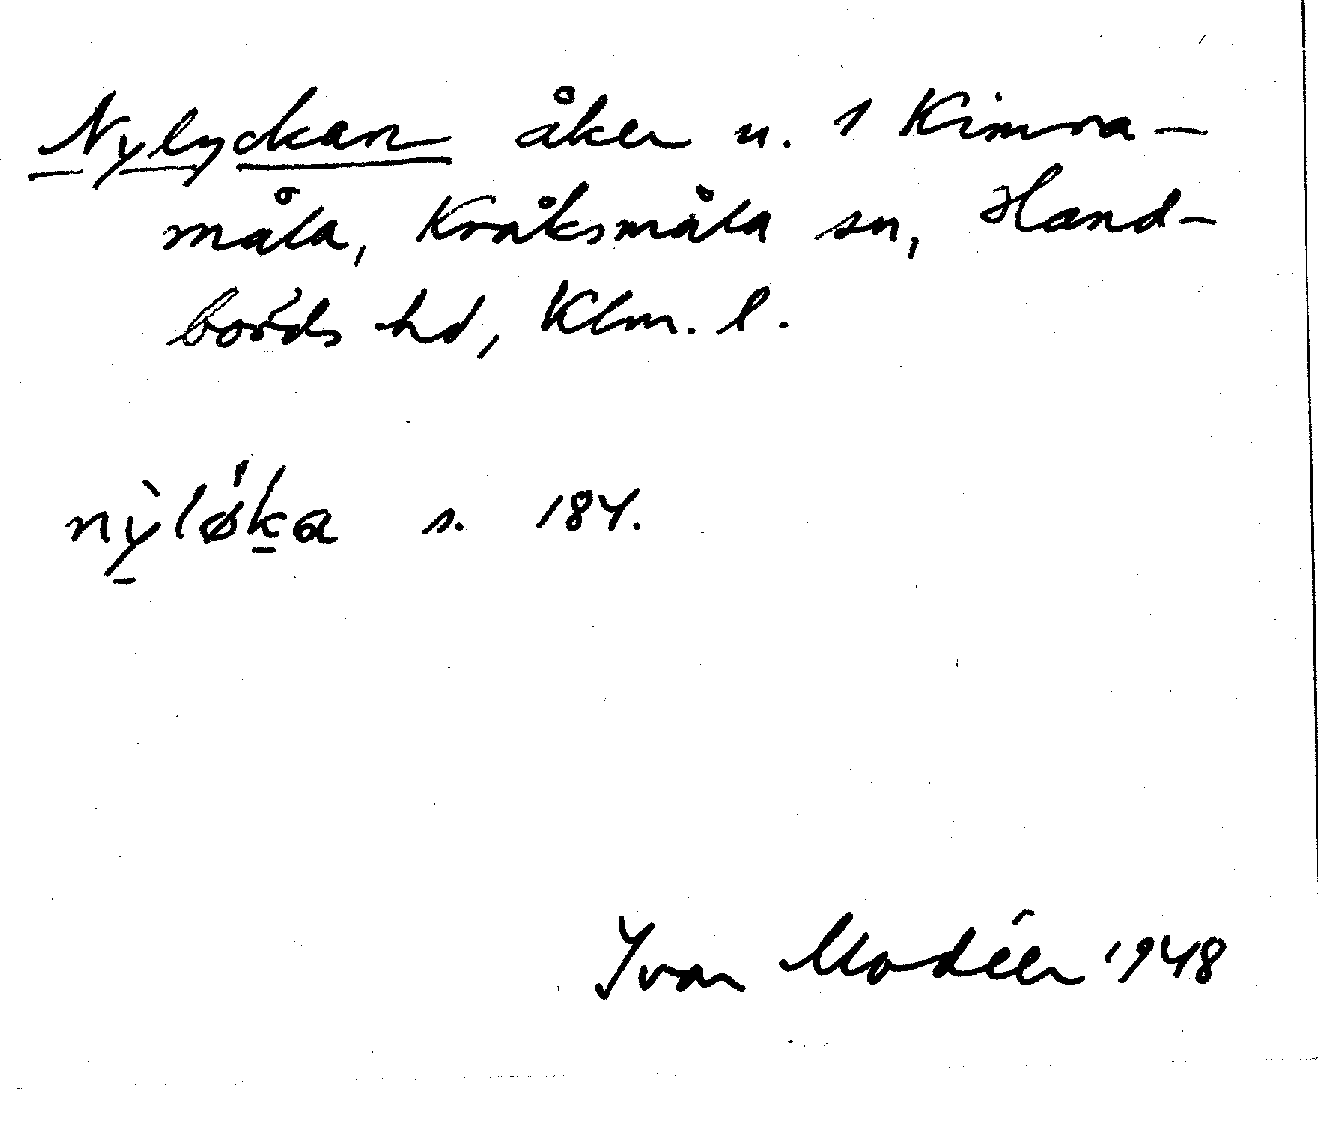 Nylyckan åker u. 1 Kimra-
måla, Kråksmåla sn, Hand-
börds hd, Klm. l.
nỳlø̍ka s. 184.
Ivar Modéer 1948